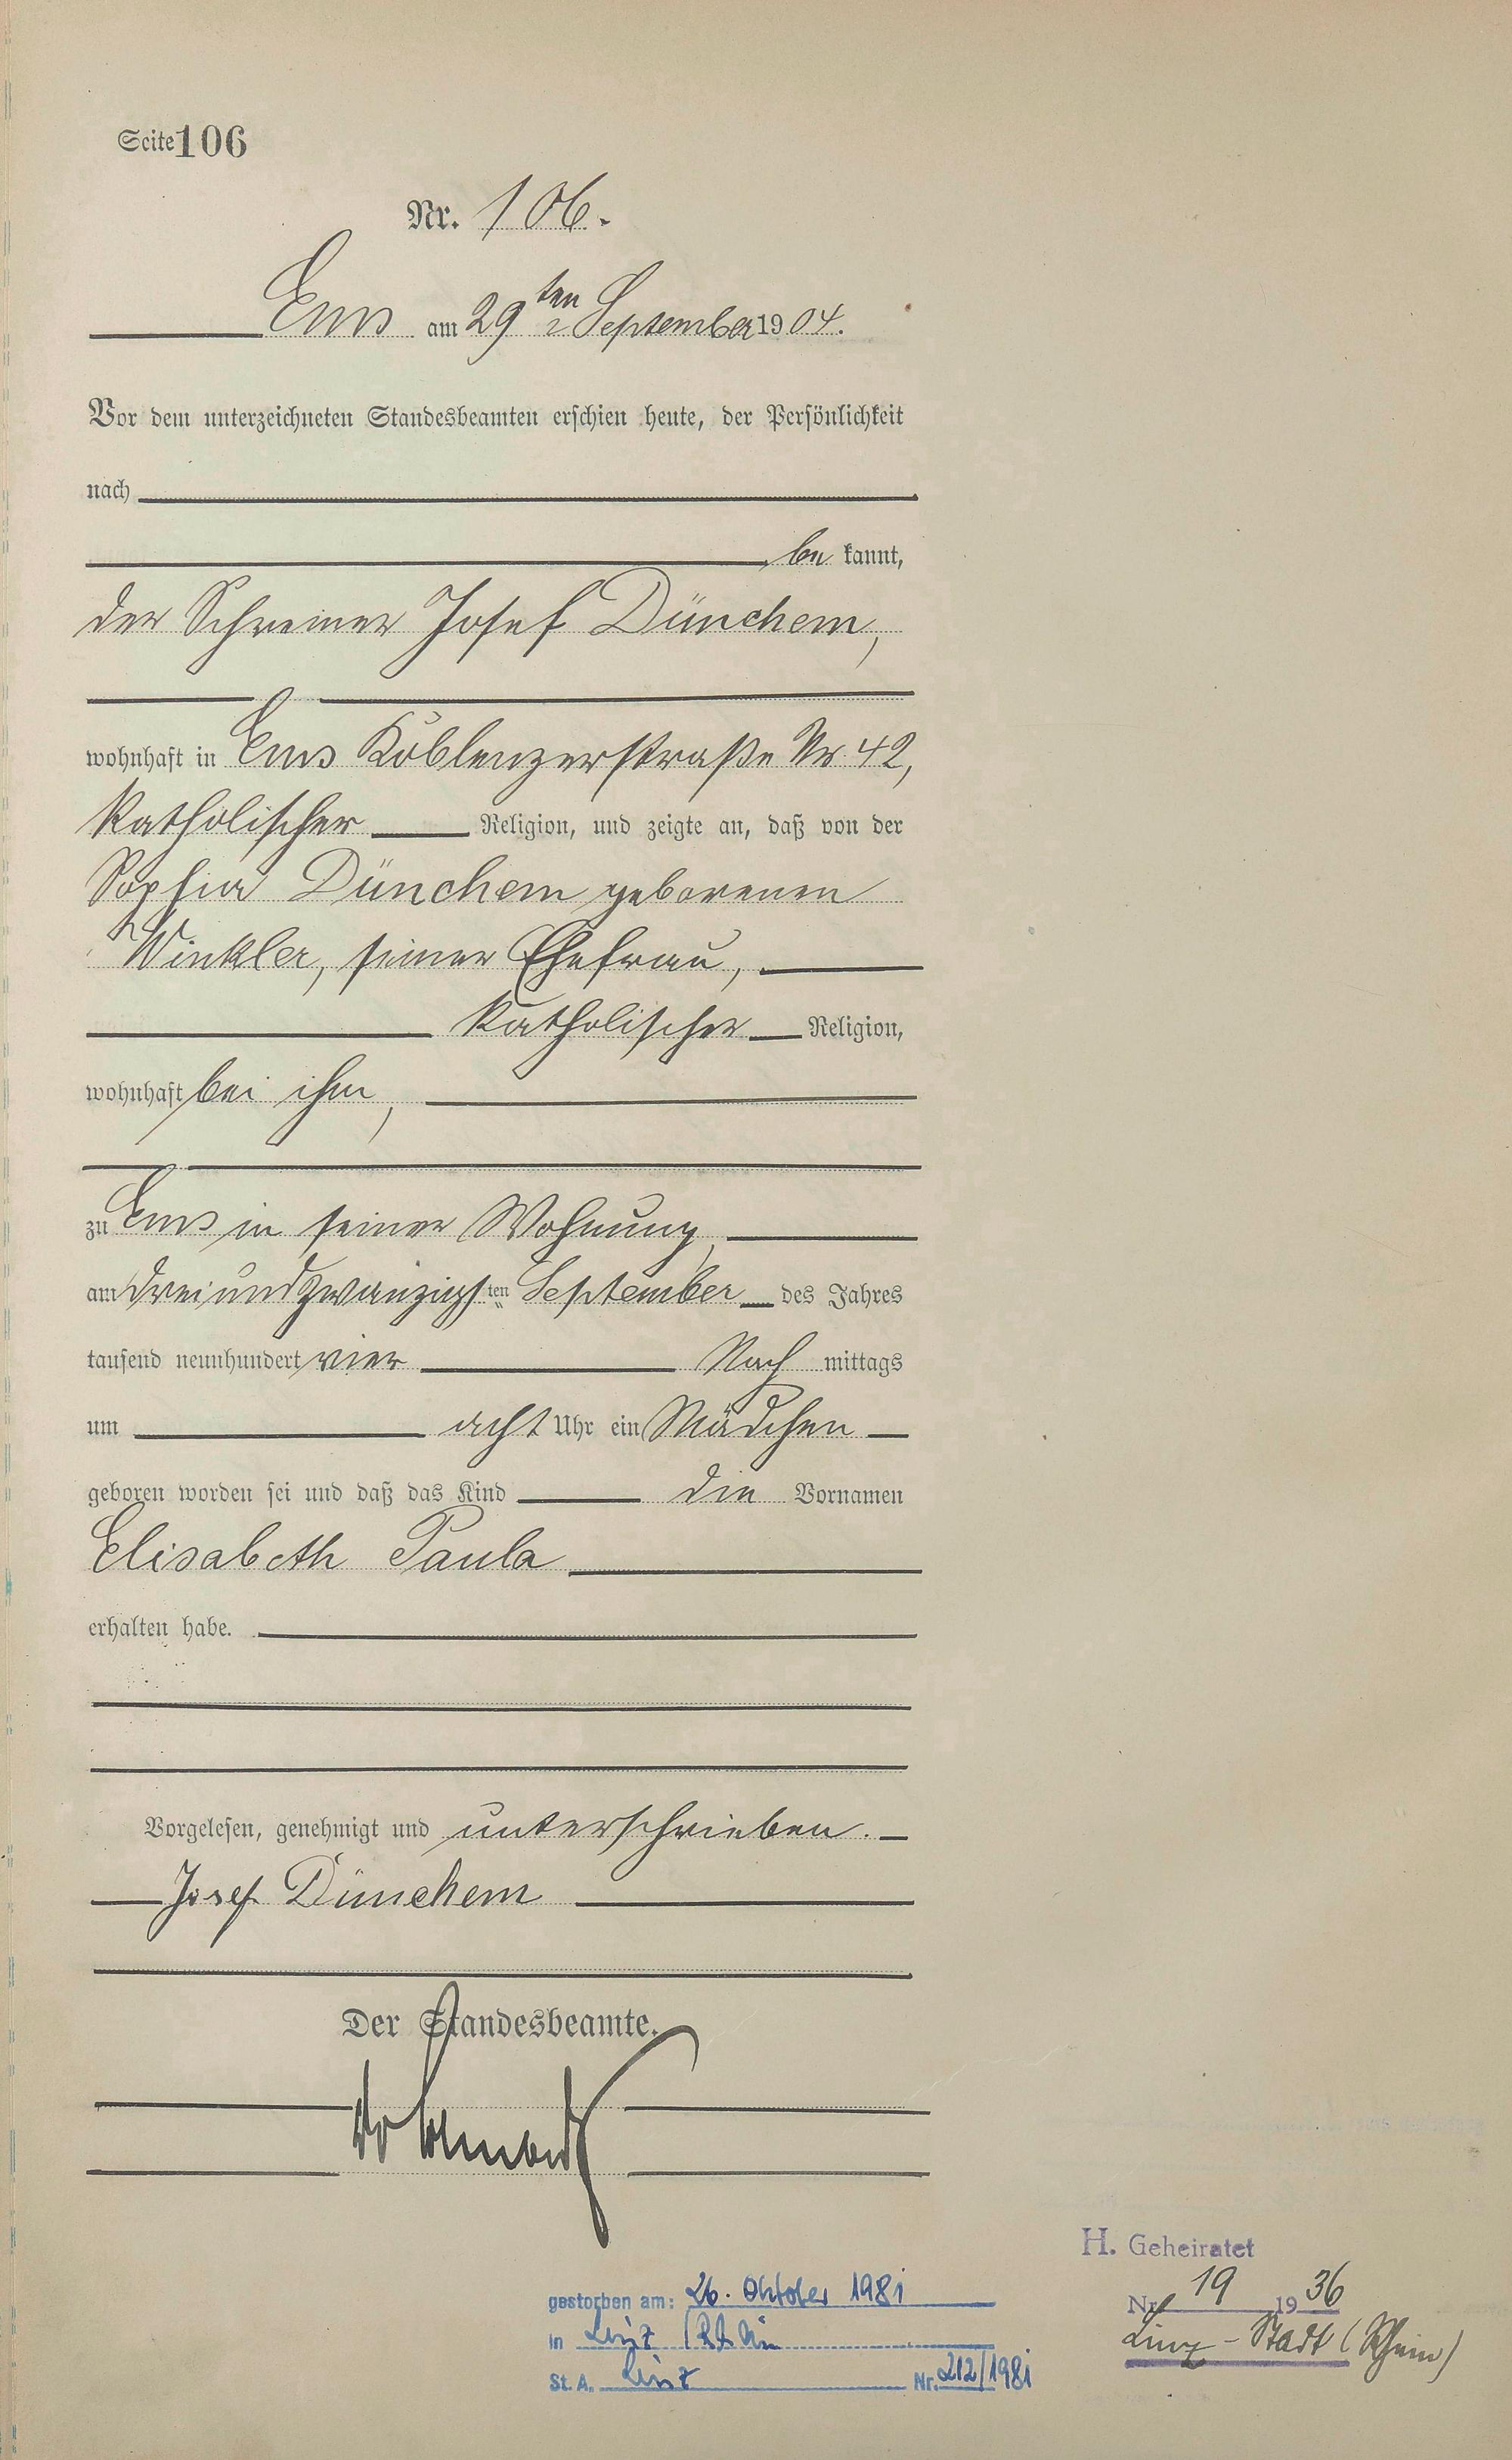 Seite 106
Nr. 106.
Ems am 29ten September 1904.
Vor dem unterzeichneten Standesbeamten erschien heute, der Persönlichkeit
nach
be kannt,
der Schreiner Josef Dünchem,
wohnhaft in Ems Koblenzerstraße Nr. 42,
katholischer Religion, und zeigte an, daß von der
Sophia Dünchem geborenen
Winkler, seiner Ehefrau,
katholischer Religion,
wohnhaft bei ihm,
zu Ems in seiner Wohnung,
am dreiundzwanzigsten September des Jahres
tausend neunhundert vier Nach mittags
um acht Uhr ein Mädchen
geboren worden sei und daß das Kind die Vornamen
Elisabeth Paula
erhalten habe.
Vorgelesen, genehmigt und unterschrieben.
Josef Dünchem
Der Standesbeamte.
H. Geheiratet
Nr. 19 1936
Linz-Stadt (Rhein)
gestorben am: 26. Oktober 1981
in Linz
St. A. Linz Nr. 212/1981